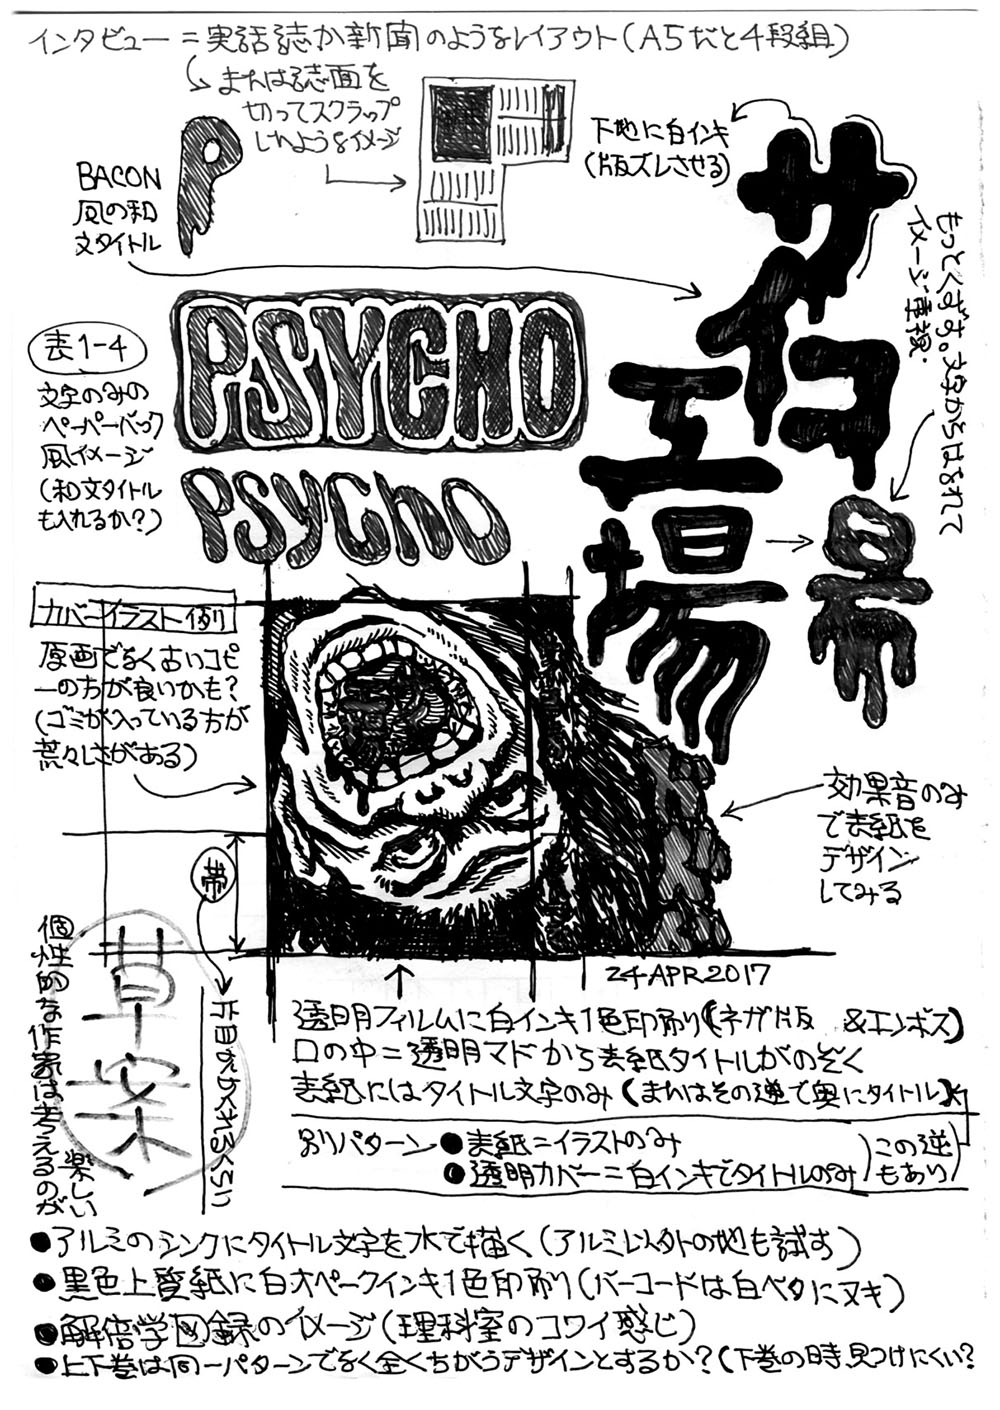 インタビュー＝実話誌か新聞のようなレイアウト(A5だと4段組)
または誌面を
切ってスクラップ
したようなイメージ
BACON
風の和
文タイトル
下地に白インキ
(版ズレさせる)
サイコ
工場
もっとくずす。文字からはなれて
イメージ重視.
場
表1-4
文字のみの
ペーパーバック
風イメージ
(和文タイトル
も入れるか?)
PSYCHO
PSYCHO
カバーイラスト例
原画でなく古いコピ
ーの方が良いかも?
(ゴミが入っている方が
荒々しさがある)
効果音のみ
で表紙を
デザイン
してみる
帯
片目がかくれるくらい
24 APR 2017
草案
個性的な作家は考えるのが
楽しい
透明フィルムに白インキ1色印刷(ネガ版 &エンボス)
口の中＝透明マドから表紙タイトルがのぞく
表紙にはタイトル文字のみ(またはその逆で奥にタイトル)
別パターン ●表紙＝イラストのみ
●透明カバー＝白インキでタイトルのみ
この逆
もあり
●アルミのシンクにタイトル文字を水で描く(アルミ以外の地も試す)
●黒色上質紙に白オペークインキ1色印刷(バーコードは白ベタにヌキ)
●解倍学図録のイメージ(理科室のコワイ感じ)
●上下巻は同一パターンでなく全くちがうデザインとするか?(下巻の時見つけにくい?